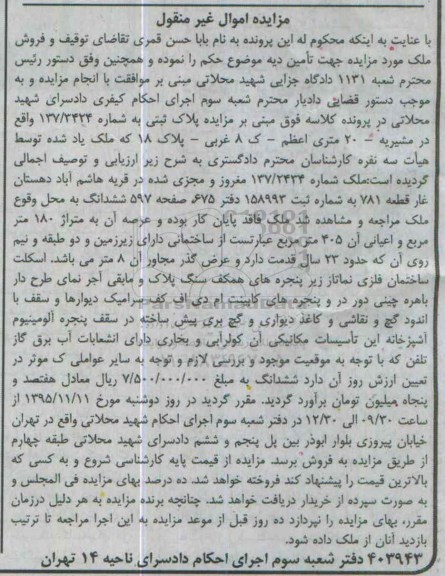 مزایده اموال غیر منقول
با عنایت به اینکه محکوم له این پرونده به نام بابا حسن قمری تقاضای توقیف و فروش
ملک مورد مزایده جهت تأمین دیه موضوع حکم را نموده و همچنین وفق دستور رئیس
محترم شعبه ۱۱۳۱ دادگاه جزایی شهید محلاتی مبنی بر موافقت با انجام مزایده و به
موجب دستور قضایی دادیار محترم شعبه سوم اجرای احکام کیفری دادسرای شهید
محلاتی در پرونده کلاسه فوق مبنی بر مزایده پلاک ثبتی به شماره ۱۳۷/۳۴۲۴ واقع
در مشیریه – ۲۰ متری اعظم – ک ۸ غربی – پلاک ۱۸ که ملک یاد شده توسط
هیأت سه نفره کارشناسان محترم دادگستری به شرح زیر ارزیابی و توصیف اجمالی
گردیده است:ملک شماره ۱۳۷/۲۴۳۴ مفروز و مجزی شده در قریه هاشم آباد دهستان
غار قطعه ۷۸۱ به شماره ثبت ۱۵۸۹۹۳ دفتر ۶۷۵، صفحه ۵۹۷ ششدانگ به محل وقوع
ملک مراجعه و مشاهده شد ملک فاقد پایان کار بوده و عرصه آن به متراژ ۱۸۰ متر
مربع و اعیانی آن ۴۰۵ متر مربع عبارتست از ساختمانی دارای زیرزمین و دو طبقه و نیم
روی آن که حدود ۲۳ سال قدمت دارد و عرض گذر مجاور آن ۸ متر می باشد. اسکلت
ساختمان فلزی نماتاز زیر پنجره های همکف سنگ پلاک و مابقی آجر نمای طرح دار
باهره چینی دور در و پنجره های کابینت ام دی اف کف سرامیک دیوارها و سقف با
اندود گچ و نقاشی و کاغذ دیواری و گچ بری پیش ساخته در سقف پنجره آلومینیوم
آشپزخانه این تأسیسات مکانیکی آن کولرآبی و بخاری دارای انشعابات آب برق گاز
تلفن که با توجه به موقعیت موجود و بررسی لازم و توجه به سایر عواملی ک موثر در
تعیین ارزش روز آن دارد ششدانگ به مبلغ ۷/۵۰۰/۰۰۰/۰۰۰ ریال معادل هفتصد و
پنجاه میلیون تومان برآورد گردید. مقرر گردید در روز دوشنبه مورخ ۱۳۹۵/۱۱/۱۱ از
ساعت ۰۹/۳۰ الی ۱۲/۳۰ در دفتر شعبه سوم اجرای احکام شهید محلاتی واقع در تهران
خیابان پیروزی بلوار ابوذر بین پل پنجم و ششم دادسرای شهید محلاتی طبقه چهارم
از طریق مزایده به فروش برسد. مزایده از قیمت پایه کارشناسی شروع و به کسی که
بالاترین قیمت را پیشنهاد کند فروخته خواهد شد. ده درصد بهای مزایده فی المجلس و
به صورت سپرده از خریدار دریافت خواهد شد. چنانچه برنده مزایده به هر دلیل درزمان
مقرر، بهای مزایده را نپردازد ده روز قبل از موعد مزایده به این اجرا مراجعه تا ترتیب
بازدید آنان از ملک داده شود.
۴۰۳۹۴۳ دفتر شعبه سوم اجرای احکام دادسرای ناحیه ۱۴ تهران